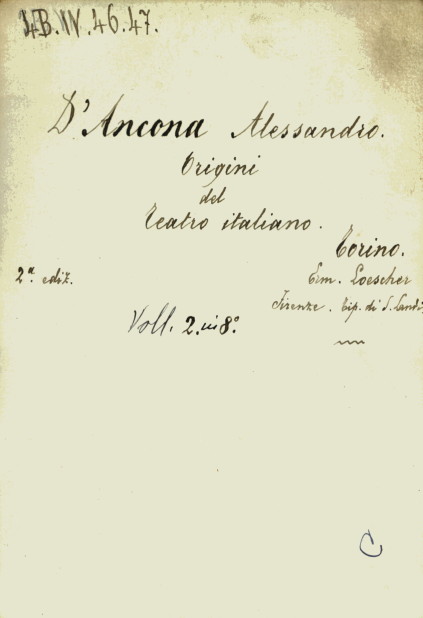 4B.IV.46.47.
D'Ancona Alessandro.
Origini
del
Teatro italiano.
Torino.
2ª. ediz.
Erm. Loescher
Firenze. Tip. di S. Landi,
Voll. 2. in 8º.
C